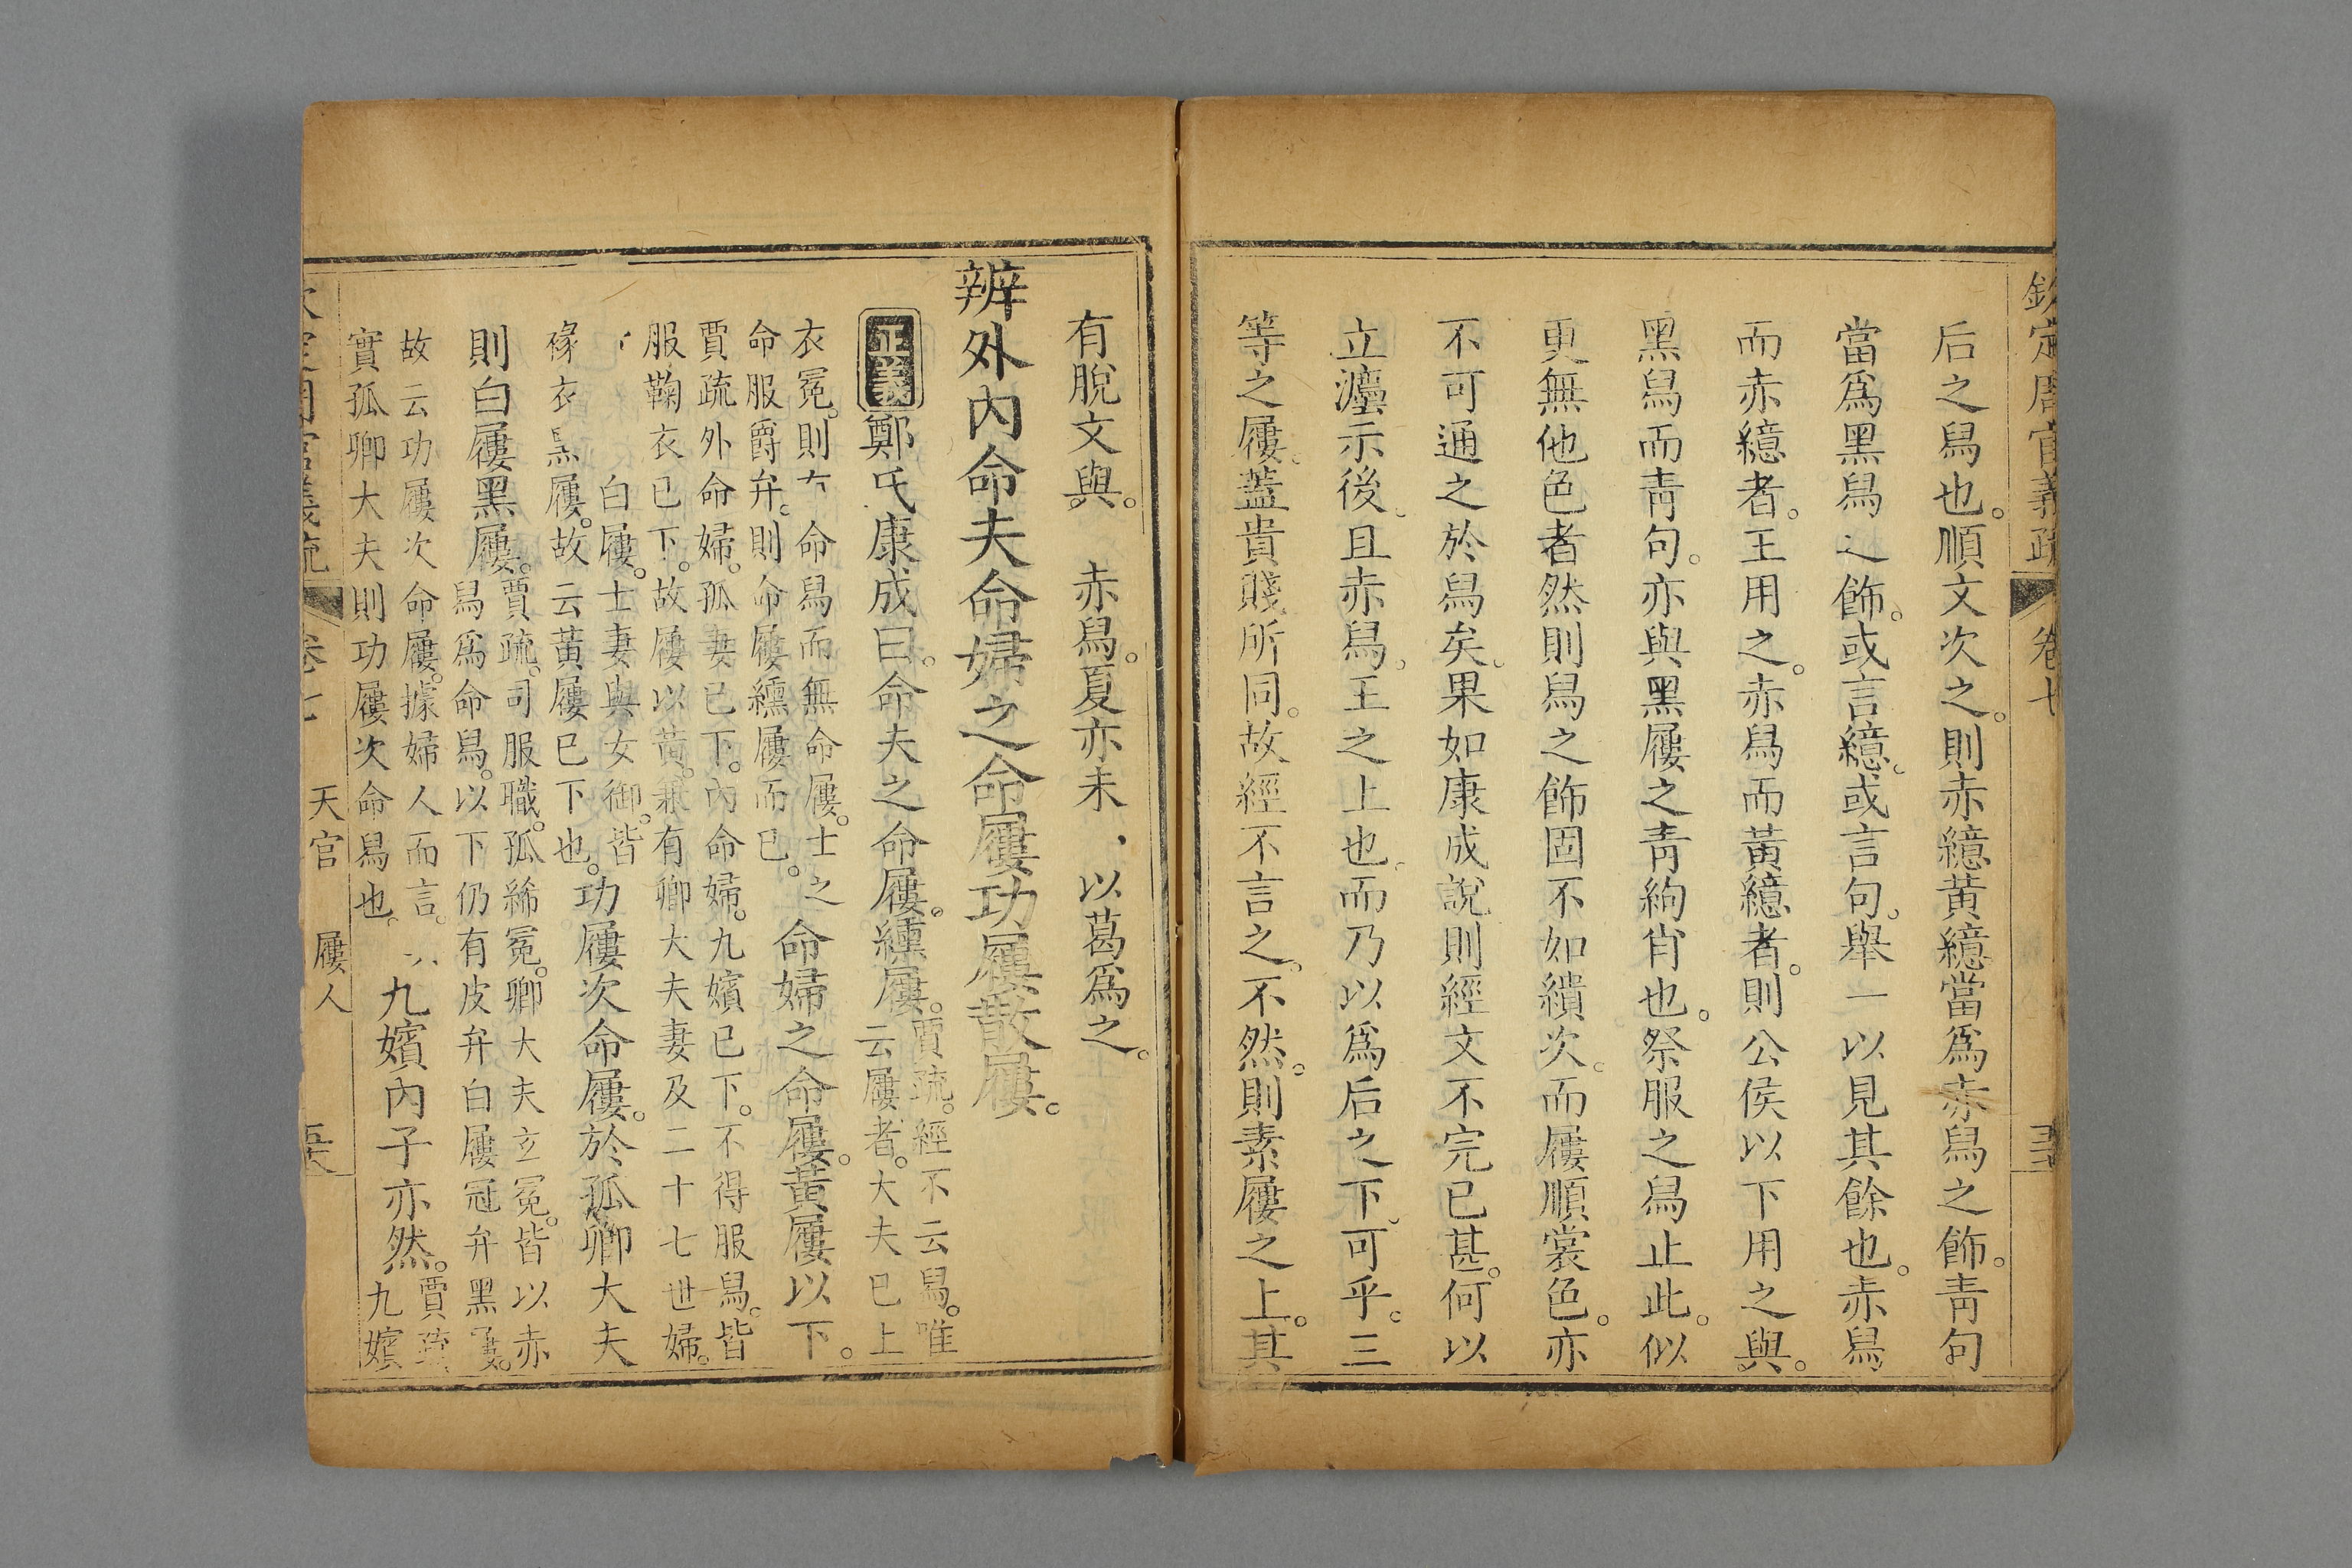 欽定周官義疏 卷七
后之舄也。順文次之。則赤繶黃繶當爲赤舄之飾。靑句
當爲黑舄之飾。或言繶。或言句。舉一以見其餘也。赤舄
而赤繶者。王用之。赤舄而黃繶者。則公侯以下用之與。
黑舄而靑句。亦與黑屨之靑絇肖也。祭服之舄止此。似
更無他色者然則舄之飾固不如繢次。而屨順裳色。亦
不可通之於舄矣。果如康成說則經文不完已甚。何以
立灋示後。且赤舄。王之上也。而乃以爲后之下。可乎。三
等之屨。蓋貴賤所同。故經不言之。不然。則素屨之上。其
有脫文與。 赤舄。夏亦未 以葛爲之。
辨外內命夫命婦之命屨功屨散屨。
正義鄭氏康成曰。命夫之命屨。纁屨。賈疏。經不云舄。唯
云屨者。大夫已上
衣冕。則 命舄而無命屨。士之命婦之命屨。黃屨以下。
命服爵弁。則命屨纁屨而已。
賈疏外命婦。孤妻已下。內命婦。九嬪已下。不得服舄。皆
服鞠衣已下。故屨以黃。兼有卿大夫妻及二十七世婦。
白屨。士妻與女御。皆功屨次命屨。於孤卿大夫
褖衣黑屨。故云黃屨已下也。
則白屨黑屨。賈疏。司服職。孤絺冕。卿大夫玄冕。皆以赤
舄爲命舄。以下仍有皮弁白屨冠弁黑屨。
故云功屨次命屨。據婦人而言。九嬪內子亦然。賈疏
實孤卿大夫則功屨次命舄也。九嬪
卷七 天官 屨人